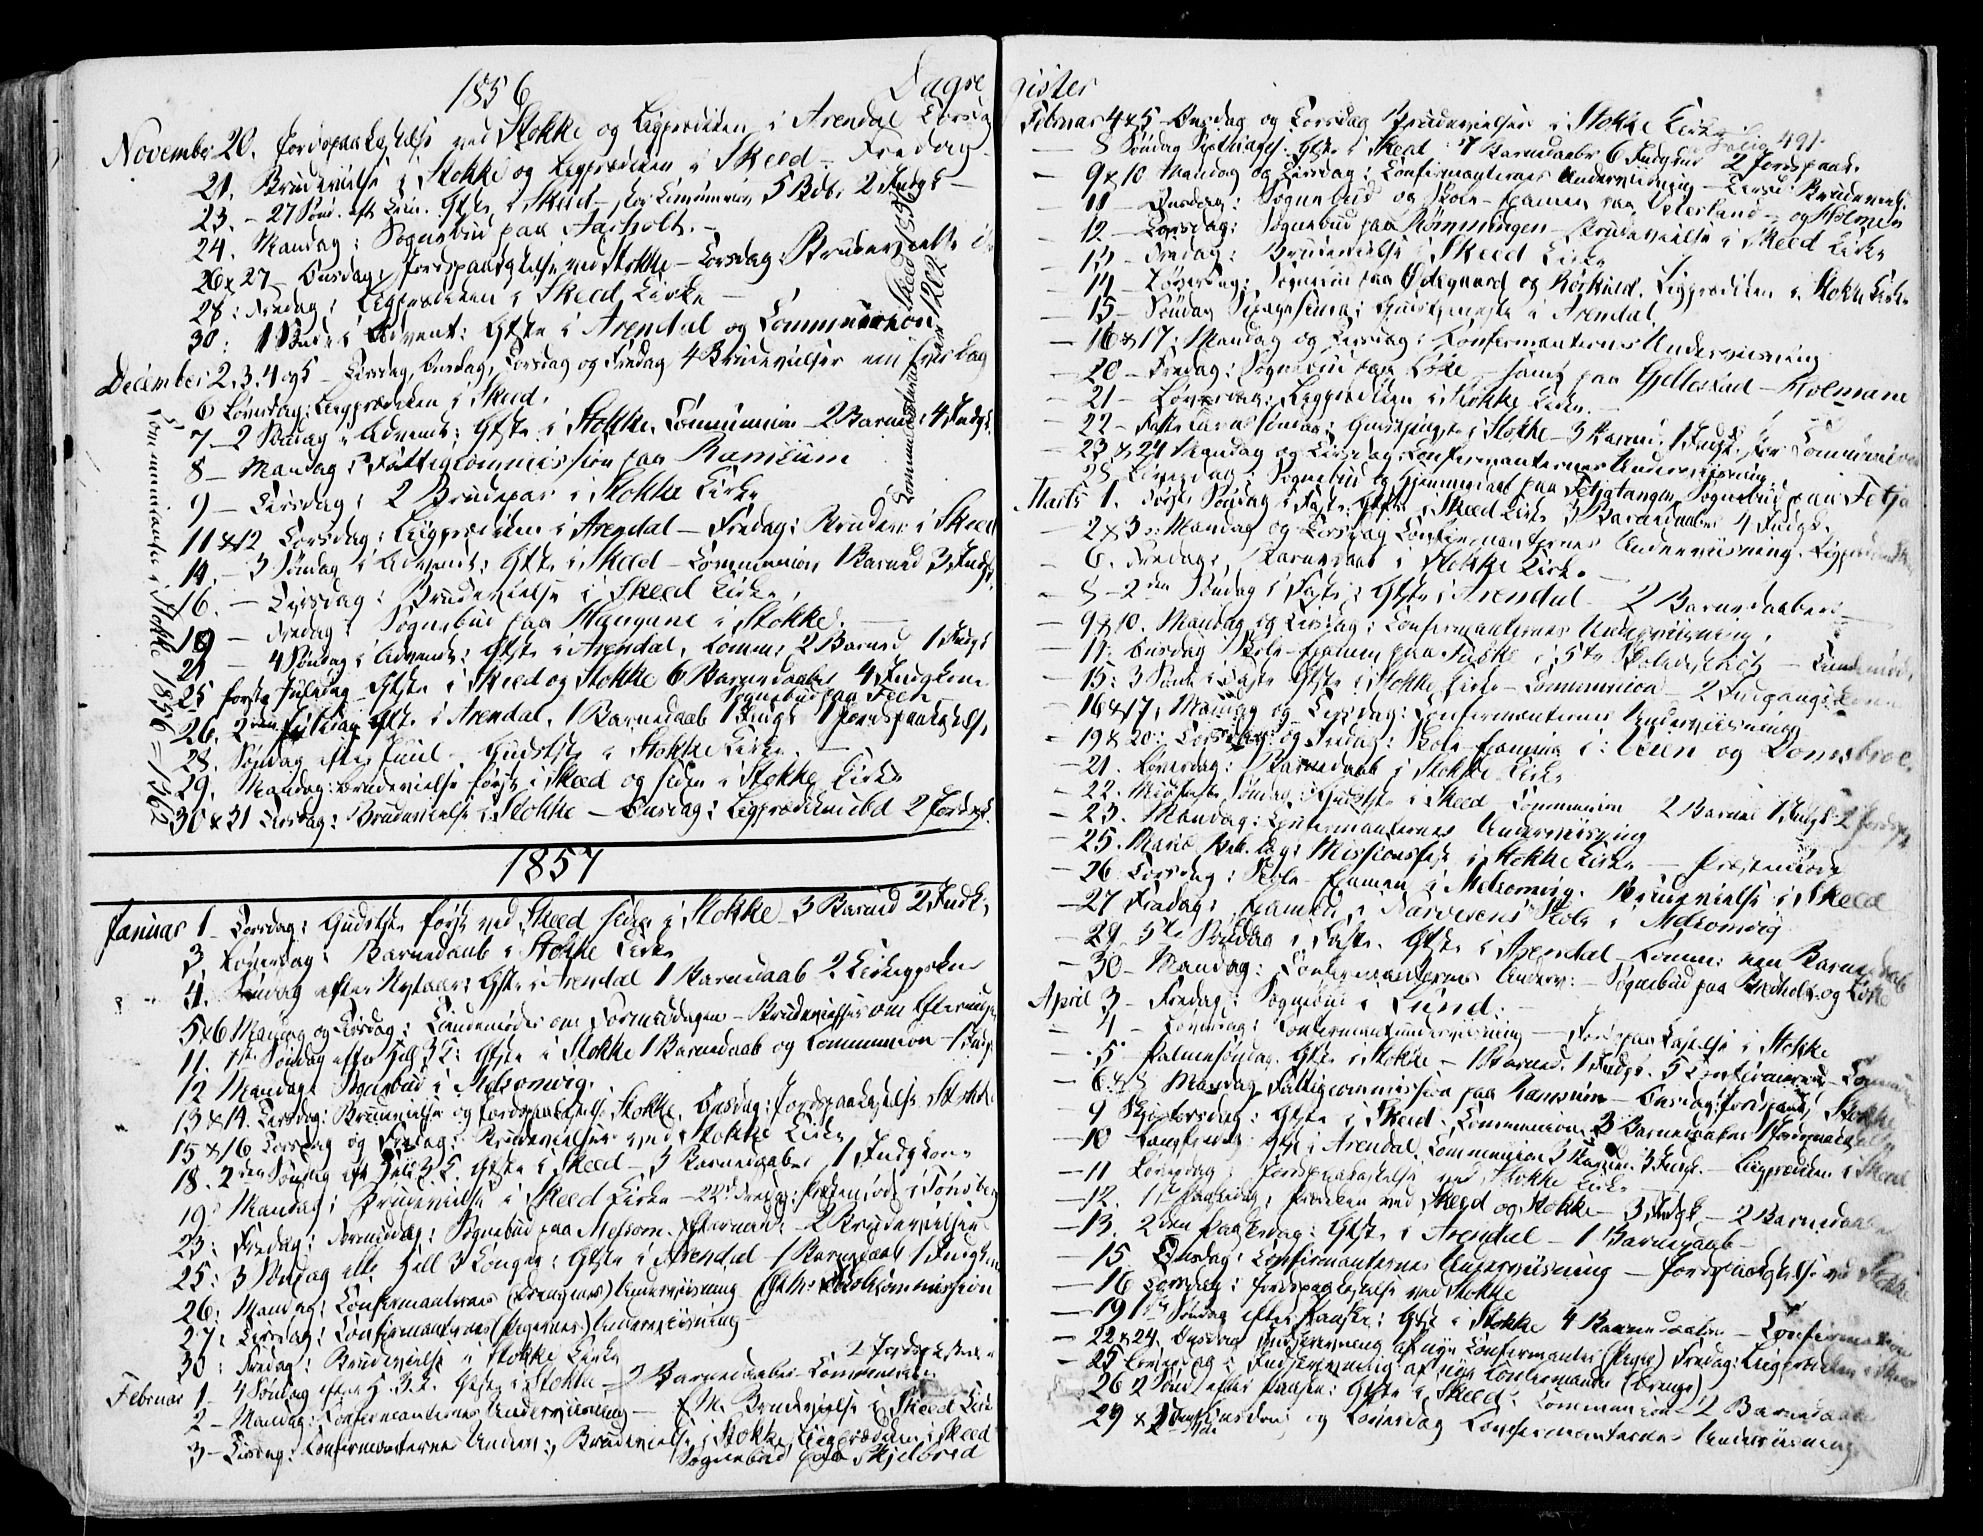 1856 Dagre
November 20. Jordspaakastelse ved Stokke og Ligprædiken i Arendal Torsdag
21. Brudevielse i Stokke og Ligprædiken i Skeed - Fredag
23. - 27 Sønd. eft. Trin. Gtste i Skeed - Communion 5 Bdb. 2 Indgk
24. Mandag: Sognebud paa Aasholt. -
26 & 27 - Onsdag: Jordspaakastelse ved Stokke - Torsdag: Brudevielse
28: Fredag: Ligprædiken i Skeed Kirke -
30: 1 Sønd. i Advent: Gtste i Arendal og Communion
December 2, 3, 4 og 5 - Tirsdag, Onsdag, Torsdag og Fredag 4 Brudevielser een hver Dag
6 Løverdag: Ligprædiken i Skeed.
7 - 2 Søndag i Advent: Gtste i Stokke. Communion - 2 Barned. 4 Indgk.
8 - Mandag: Fattigcommission paa Ramsum
9 - Tirsdag: 2 Brudepar i Stokke Kirke
11 & 12 Torsdag: Ligprædiken i Arendal - Fredag: Brudev. i Skeed
14. - 3 Søndag i Advent: Gtste i Skeed - Communion 1 Barned 3 Indgk.
16. - Tirsdag: Brudevielse i Skeed Kirke.
19 - Fredag: Sognebud paa Haugane i Stokke.
21 - 4 Søndag i Advent: Gtste i Arendal, Komm: 2 Barned 1 Indgk
25 første Juledag Gtste i Skeed og Stokke 6 Barnedaaber 4 Indgkone
Sognebud paa Feen
26. 2den Juledag Gtste i Arendal. 1 Barnedaab 1 Indgk 1 Jordspaakastelse,
28. Søndag efter Juul. Gudstste i Stokke Kirke. -
29. Mandag: Brudevielse først i Skeed og siden i Stokke Kirke
30 & 31 Tirsdag: Brudevielse i Stokke - Onsdag: Ligprædiken ibd 2 Jordspk.
Communicanter i Stokke 1856 = 1362
Communicanter i Skeed 1856 1202
1857
Januar 1 - Torsdag: Gudstste først ved Skeed siden i Stokke - 3 Barned 2 Indk.
3 Løverdag: Barnedaab i Stokke Kirke
4. Søndag efter Nytaar: Gtste i Arendal 1 Barnedaab 2 Kirkegkone
5 & 6 Mandag og Tirsdag: Tandemøder om Formiddagen - Brudevielser om Eftermidg
11. 1ste Søndag efter Hell 3 K: Gtste i Stokke 1 Barnedaab og Communion - 1 Indg
12 Mandag: Sognebud i Melsomvig.
13 & 14. Tirsdag: Brudevielse og Jordspaakastelse Stokke. Onsdag: Jordspaakastelse Stokke
15 & 16 Torsdag og Fredag: Brudevielser ved Stokke Kirke
18. 2den Søndag eft Hell 3 K. Gtste i Skeed - 3 Barnedaaber 1 Indgkone
19: Mandag: Brudevielse i Skeed Kirke - 22d Torsdag: Præstemøde i Tønsberg
23: Fredag: Formiddag: Sognebud paa Melsom. Eftermid: 2 Brudevielser
25: 3 Søndag efter Hell 3 Konger: Gtste i Arendal - 1 Barnedaab 1 Indgkone
26: Mandag: Confirmanternes (Drengenes) Underviisning Efterm: Skolecommission
27: Tirsdag: Confirmanternes (Pigernes) Underviisning
30: Fredag: Brudevielse i Stokke Kirke
2 Jordspaakast
Februar 1 - 4 Søndag efter H. 3 K. Gtste i Stokke - 2 Barnedaaber Communion
2 - Mandag: Confirmanternes Underviisning - E.M. Brudevielse i Skeed Kirke
3 - Tirsdag: Confirmanternes Underv: Brudevielse i Stokke, Ligprædiken i Skeed
Sognebud paa Skjelbred
gister
Folio 491.
Februar 4 & 5 - Onsdag og Torsdag Brudevielser i Stokke Kirke
- 8 Søndag Septuages. Gtste i Skeed: 7 Barnedaaber 6 Indgkone 2 Jordspaak.
- 9 & 10 Mandag og Tirsdag: Confirmanternes Underviisning - Tirsd: Brudeviels.
- 11 - Onsdag: Sognebud og Skole-Examen paa Velesland - og Holmen
- 12 - Torsdag: Sognebud paa Rømmingen - Brudevielse i Skeed Kirke
- 13 - Fredag: Brudevielse i Skeed Kirke
- 14 - Løverdag: Sognebud paa Ødegaard og Røskild. Ligprædiken i Stokke Kirke
- 15 - Søndag Sexagesima: Gudstjeneste i Arendal
- 16 & 17: Mandag og Tirsdag: Confirmanternes Underviisning
- 20 - Fredag: Sognebud paa Løke - paa Gjellestad - Holmane
- 21 - Løverdag: Ligprædiken i Stokke Kirke.
- 22 - Fastelavns Søndag: Gudstjeneste i Stokke - 3 Barned. 1 Indgk. Communion
- 23 & 24 Mandag og Tirsdag Confirmanternes Underviisning.
- 28 Løverdag: Sognebud og Hjemmedaab paa Fetjatangen Sognebud paa Fetja
Marts 1. Første Søndag i Faste: Gtste i Skeed Kirke 3 Barnedaaber 4 Indgk.
- 2 & 3: Mandag og Tirsdag Confirmanternes Underviisning.
- 6. Fredag: Barnedaab i Stokke Kirke.
- 8 - 2den Søndag i Faste: Gtste i Arendal - 2 Barnedaaber
- 9 & 10. Mandag og Tirsdag: Confirmanternes Underviisning.
- 11. Onsdag Skole-Examen paa i 5te Skoledistrict -
- 15: 3 Sønd. i Faste Gtste i Stokke Kirke - Communion - 2 Indgangskoner
- 16 & 17: Mandag og Tirsdag: Confirmanternes Underviisning
- 19 & 20: Torsdag og Fredag: Skole-Examina i: Veen og
- 21. Løverdag: Barnedaab i Stokke Kirke
- 22. Midfaste Søndag: Gudstste i Skeed - Communion 2 Barned 1 Indgk 2 Jordspk
- 23. Mandag: Confirmanternes Underviisning
- 25. Mariæ Beb. Dag: Missionsfest i Stokke Kirke - Præstemøde
- 26 Torsdag: Skole-Examen i Melsomvig. Brudevielse i Skeed
- 27 Fredag: Examen i Narverens Skole i Melsomvig
- 29. 5te Søndag i Faste. Gtste i Arendal Komm: een Barnedaab
- 30 - Mandag: Confirmanternes Underv: - Sognebud paa Bredholt og Løke
April 3 - Fredag: Sognebud i Lund.
- 4 - Løverdag: Confirmantunderviisning - Jordspaakastelse i Stokke
- 5 - Palmesøndag. Gtste i Stokke - 1 Barned. 1 Indgk. 5 Confirmerede
- 6 & 8 Mandag Fattigcommission paa Ramsum - Onsdag: Jordspaak. Stokke
- 9 Skjertorsdag: Gtste i Skeed: Communion 3 Barnedaaber 1 Jordspaakastelse
- 10 Langfredag Gtste i Arendal. Communion 3 Barned. 3 Indgk. - Ligprædiken i Skeed
- 11 Løverdag: Jordspaakastelse ved Stokke Kirke
- 12. 1ste Paaskedag: Prædiken ved Skeed og Stokke - 3 Indgk - 2 Barnedaaber
- 13. 2den Paaskedag: Gtste i Arendal - 1 Barnedaab -
- 15 Onsdag: Confirmanternes Underviisning - Jordspaakastelse ved Stokke
- 16 Torsdag: Jordspaakastelse ved Stokke
- 19 1ste Søndag efter Paaske: Gtste i Stokke 4 Barnedaaber - Confirmation
- 22 & 24. Onsdag Indskrivning af nye Confirmanter (Piger) Fredag: Ligprædiken i Skeed
- 25 Løverdag: Indskrivning af nye Confirmanter (Drenge)
- 26 2 Sønd. efter Paaske: Gtste i Skeed: Communion 2 Barnedaaber
- 29 & 2den Mai Onsdag og Løverdag Confirmanternes Underviisning